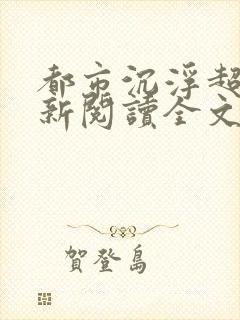 都市沉浮超
新閱讀全文
賀登島